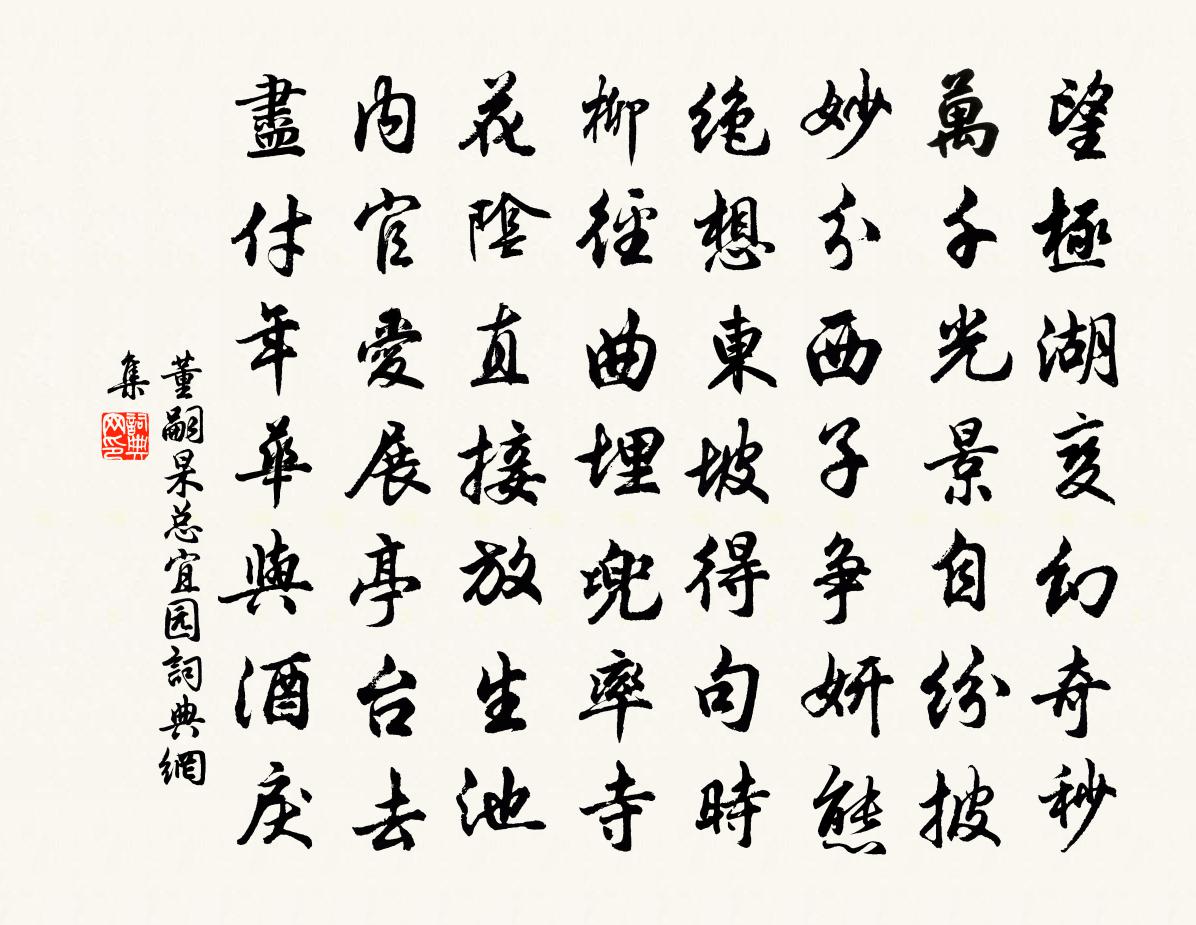 望極湖变幻奇秒
萬千光景自紛披
妙分西子争妍態
绝想東坡得句時
柳徑曲埋兜率寺
花陰直接放生池
内官愛展亭台去
盡付年華與酒戾
董嗣杲总宜园詞典網
集
詞典
网印